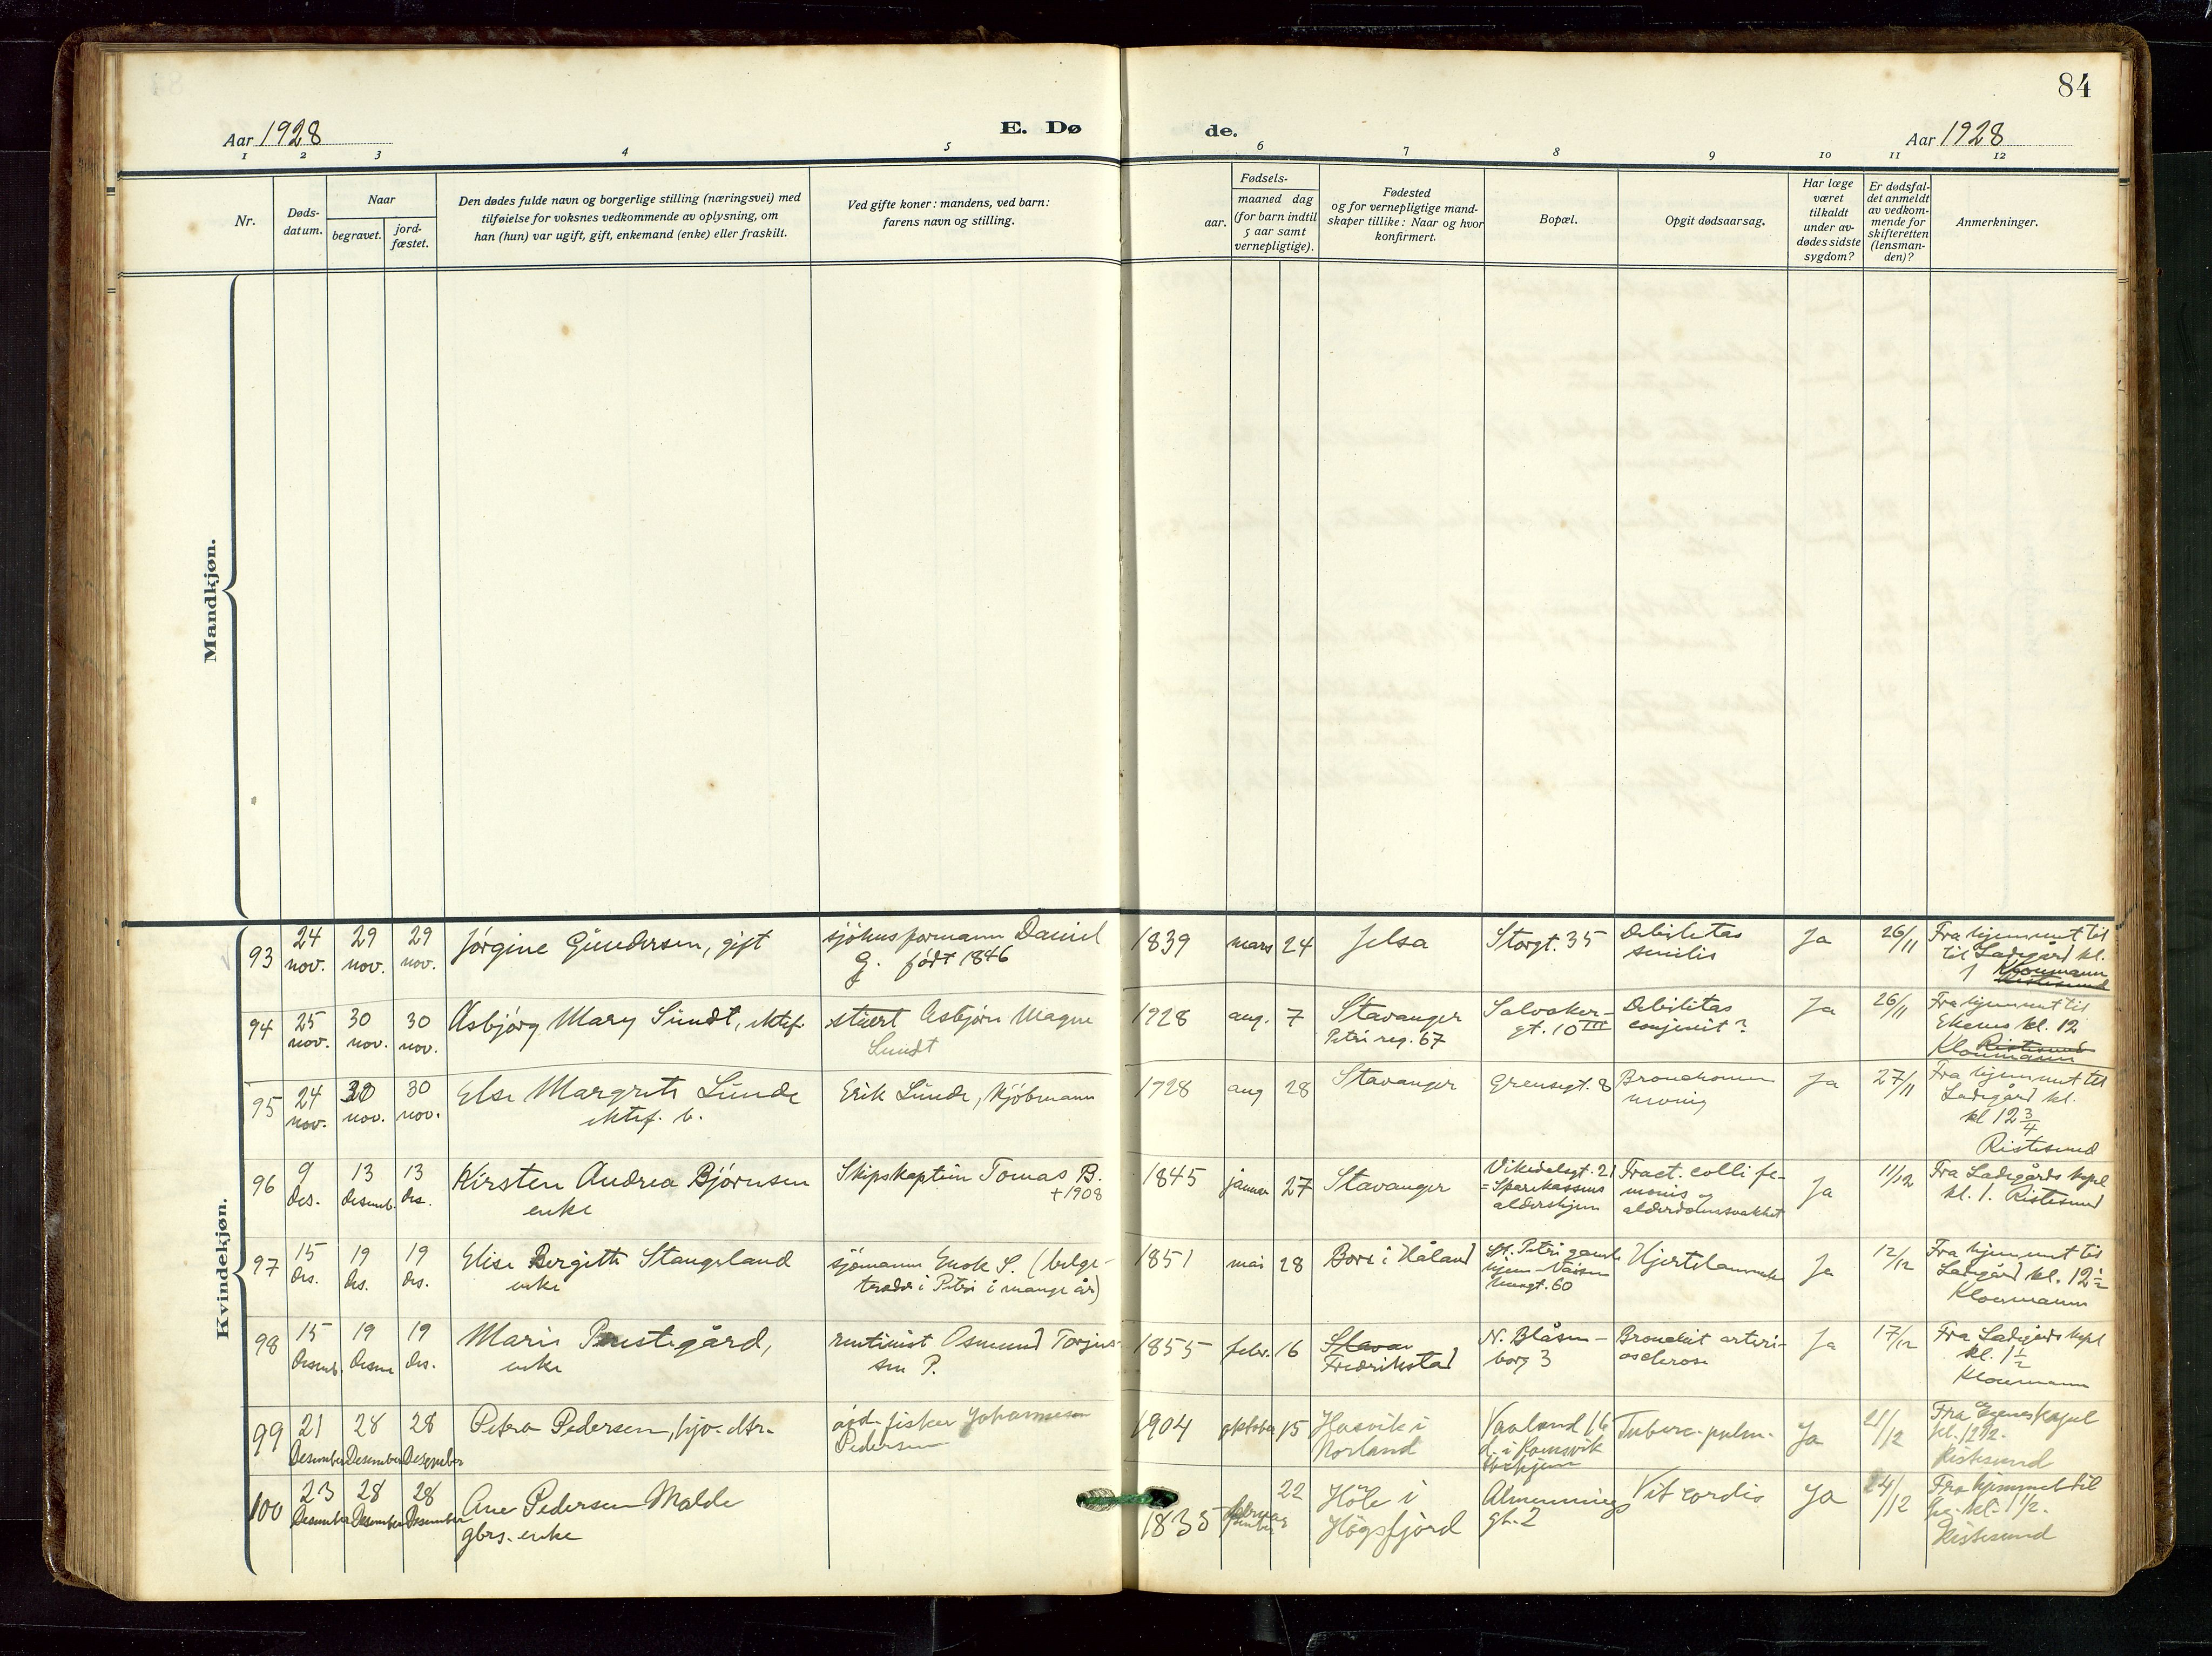 84
Aar 1928
E. Dø
de.
Aar 1928
1 2 3 4 5 6 7 8 9 10 11 12
Nr.
Døds-
datum.
Naar
begravet.
jord-
fæstet.
Den dødes fulde navn og borgerlige stilling (næringsvei) med
tilføielse for voksnes vedkommende av oplysning, om
han (hun) var ugift, gift, enkemand (enke) eller fraskilt.
Ved gifte koner: mandens, ved barn:
farens navn og stilling.
Fødsels-
aar.
maaned dag
(for barn indtil
5 aar samt
vernepligtige).
Fødested
og for vernepligtige mand-
skaper tillike: Naar og hvor
konfirmert.
Bopæl.
Opgit dødsaarsag.
Har læge
været
tilkaldt
under av-
dødes sidste
sygdom?
Er dødsfal-
det anmeldt
av vedkom-
mende for
skifteretten
(lensman-
den)?
Anmerkninger.
Mandkjøn.
Kvindekjøn.
93
24
nov.
29
nov.
29
nov.
Jørgine Gundersen, gift
sjøhusformann Daniel
G. født 1846
1839
mars
24
Jelsa
Storgt. 35
Debilitas
senilis
Ja
26/11
Fra hjemmet til
til Ladegård kl.
1 Kloumann
Ristesund
94
25
nov.
30
nov.
30
nov.
Asbjørg Mary Sundt, ektef.
stuert Asbjørn Magne
Sundt
1928
aug.
7
Stavanger
Petri reg. 67
gt. 10 III
Debilitas
conjenit?
Ja
26/11
Fra hjemmet til
Ekenes kl. 12
Ristesund
Kloumann
95
24
nov.
30
nov.
30
nov.
Else Margrete Lunde
ektef. b.
Erik Lunde, kjøbmann
1928
aug
28
Stavanger
Grensegt. 8
Bronchopneu
moni
Ja
27/11
Fra hjemmet til
Ladegård kl.
kl 12 3/4
Ristesund
96
9
des.
13
desemb.
13
des.
Kirsten Andrea Bjørnsen
enke
Skipskaptein Tomas B.
+ 1908
1845
januar
27
Stavanger
Vikedalsgt. 21
= Sparekassens
aldershjem
Fract. colli fe-
moris og
alderdomssvakhet
Ja
11/12
Fra Ladegårds kapel
kl. 1. Ristesund
97
15
des.
19
des.
19
des.
Elise Bergitte Stangeland
enke
sjømann Enok S. (belge-
treder i Petri i mange år)
1851
mai
28
Bore i Håland
St. Petri gamle
hjem
60
Hjertelammelse
Ja
12/12
Fra hjemmet til
Ladegård kl. 12 1/2
Kloumann
98
15
desemb.
19
desem
19
des.
Marie Prestegård,
enke
rentenist Osmund Torjus-
sen P.
1855
febr.
16
Stavan
Fredrikstad
N. Blåsen-
borg 3
Bronchit arteri-
osclerose
Ja
17/12
Fra Ladegårds kapel
kl. 1 1/2
Kloumann
99
21
Desember
28
Desember
28
Desember
Petra Pedersen, hjv. dtr.
avd. fisker Johannesen
Pedersen
1904
oktober
15
Hasvik i
Norland
Vaaland 16
d. i Ramsvik
Tuberc. pulm.
Ja
21/12
Fra Egenes kapel
kl. 12 1/2.
Ristesund
100
23
Desember
28
Desember
28
Desember
Ane Pedersen Malde
gbrs. enke
1835
22
Høle i
Høgsfjord
Almennings
gt. 2
Vit cordis
Ja
24/12
Fra hjemmet til
kl. 1 1/2.
Ristesund